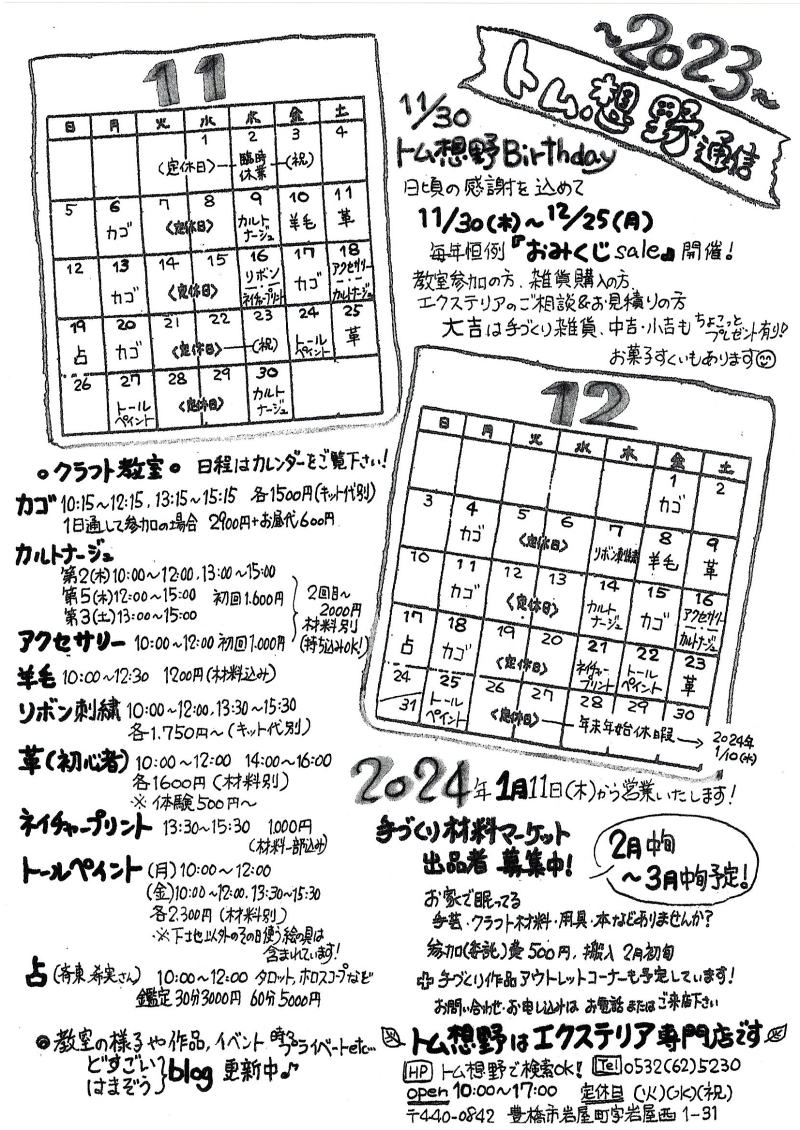 ~2023~
トム.想野通信
11/30
トム想野Birthday
日頃の感謝を込めて
11/30(木)~12/25(月)
毎年恒例『おみくじsale』開催!
教室参加の方、雑貨購入の方、
エクステリアのご相談&お見積りの方
大吉は手づくり雑貨、中吉・小吉もちょこっとプレゼント有り!
お菓子すくいもあります
11
日 月 火 水 木 金 土
1 2 3 4
〈定休日〉 臨時休業 (祝)
5 6 7 8 9 10 11
カゴ 〈定休日〉 カルトナージュ 羊毛 革
12 13 14 15 16 17 18
カゴ 〈定休日〉 リボン ネイチャープリント カゴ アクセサリー カルトナージュ
19 20 21 22 23 24 25
占 カゴ 〈定休日〉 (祝) トールペイント 革
26 27 28 29 30
トールペイント 〈定休日〉 カルトナージュ
12
日 月 火 水 木 金 土
1 2
カゴ
3 4 5 6 7 8 9
カゴ 〈定休日〉 リボン刺繍 羊毛 革
10 11 12 13 14 15 16
カゴ 〈定休日〉 カルトナージュ カゴ アクセサリー カルトナージュ
17 18 19 20 21 22 23
占 カゴ 〈定休日〉 ネイチャープリント トールペイント 革
24/31 25 26 27 28 29 30
トールペイント 〈定休日〉 年末年始休暇→ 2024年1/10(水)
クラフト教室 日程はカレンダーをご覧下さい!
カゴ 10:15~12:15, 13:15~15:15 各1500円(キット代別)
1日通して参加の場合 2900円+お昼代600円
カルトナージュ
第2(木)10:00~12:00, 13:00~15:00
第5(木)12:00~15:00 初回1.600円
第3(土)13:00~15:00
2回目~
2000円
材料別
(持ち込みOK!)
アクセサリー 10:00~12:00 初回1.000円
羊毛 10:00~12:30 1200円(材料込み)
リボン刺繍 10:00~12:00, 13:30~15:30
各1.750円~(キット代別)
革(初心者) 10:00~12:00 14:00~16:00
各1600円(材料別)
※体験500円~
ネイチャープリント 13:30~15:30 1.000円
(材料一部込み)
トールペイント (月)10:00~12:00
(金)10:00~12:00, 13:30~15:30
各2.300円(材料別)
※下地以外のその日使う絵の具は
含まれています!
占(斉東 希実さん) 10:00~12:00 タロット、ホロスコープなど
鑑定 30分3000円 60分5000円
◎教室の様子や作品,イベント 時々プライベートetc…
どすごい
はまぞう
blog 更新中♪
2024年1月11日(木)から営業いたします!
手づくり材料マーケット
出品者 募集中!
2月中旬
~3月中旬予定!
お家で眠ってる
手芸・クラフト材料・用具・本などありませんか?
参加(委託)費500円, 搬入 2月初旬
手づくり作品アウトレットコーナーも予定しています!
お問い合わせ・お申し込みは お電話またはご来店下さい
トム想野はエクステリア専門店です
HP トム想野で検索OK! Tel 0532(62)5230
open 10:00~17:00 定休日 (火)(水)(祝)
〒440-0842 豊橋市岩屋町字岩屋西1-31